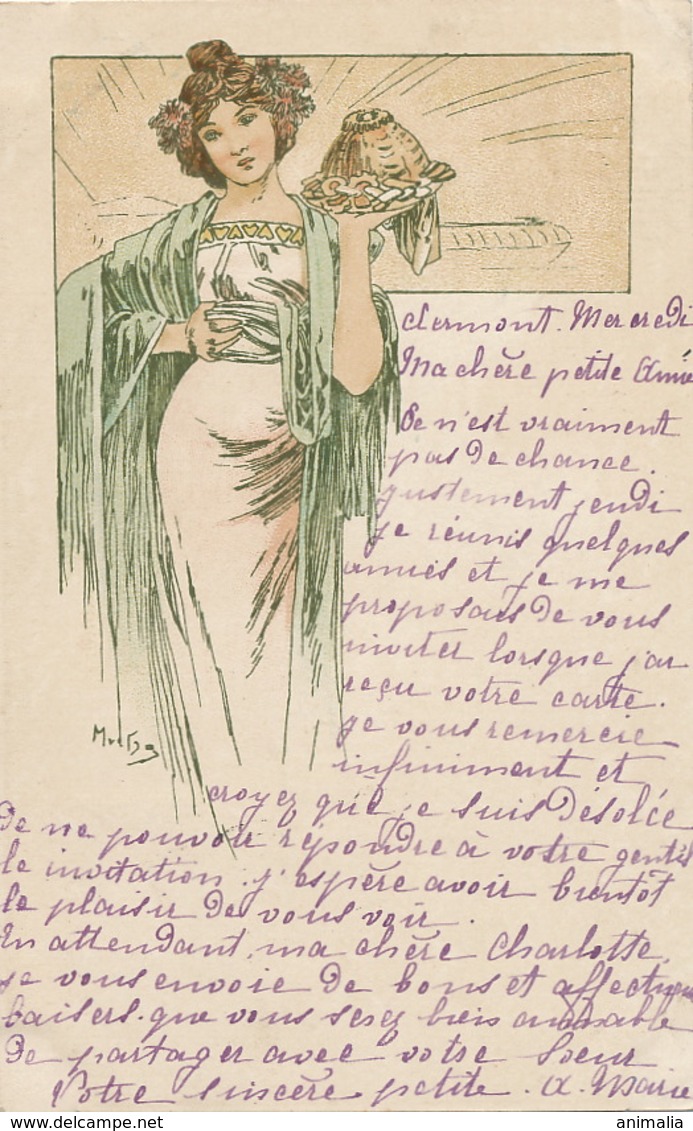 Clermont. Mercredi
Ma chère petite Amie
Ce n'est vraiment
pas de chance.
justement jeudi
je réunis quelques
amies et je me
proposais de vous
inviter lorsque j'ai
reçu votre carte.
je vous remercie
infiniment et
croyez que je suis désolée
de ne pouvoir répondre à votre gentil
le invitation. j'espère avoir bientôt
le plaisir de vous voir.
En attendant, ma chère Charlotte,
je vous envoie de bons et affectueux
baisers. que vous serez bien aimable
de partager avec votre soeur
Votre sincère petite. A. Marie
Mucha
www.delcampe.net
animalia